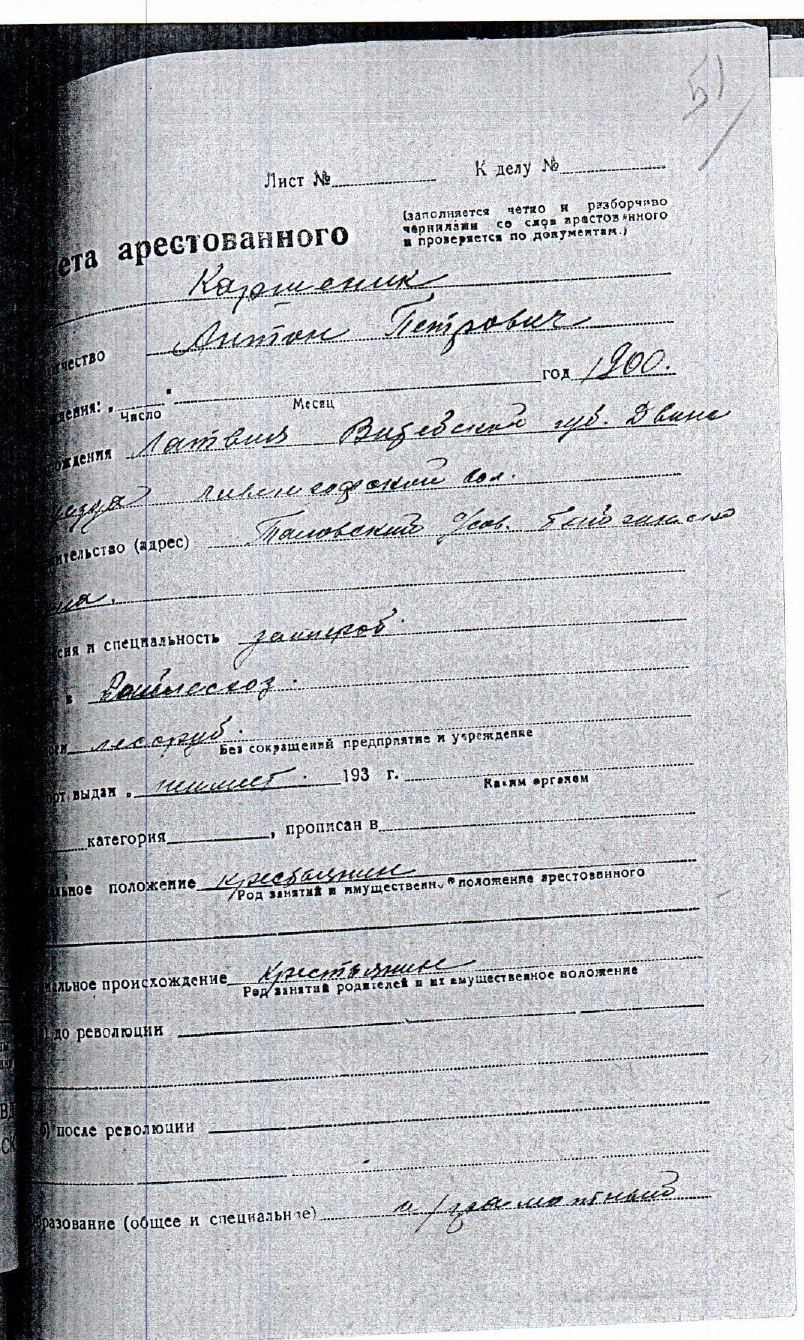 51
Лист № К делу №
ета арестованного
(заполняется четко и разборчиво
чернилами со слов арестованного
и проверяется по документам.)
Каршеник
чество Антон Петрович
дения: „ " год 1900.
Число Месяц
ождения Латвия Витебской губ. Двинс
уезда вол.
ительство (адрес)
на.
сия и специальность
в
ти лесоруб.
Без сокращений предприятие и учреждение
орт выдан „ 193 г.
Каким органом
категория , прописан в
льное положение крестьянин
Род занятий и имущественное положение арестованного
иальное происхождение крестьянин
Род занятий родителей и их имущественное положение
) до революции
б) после революции
бразование (общее и специальное) м/грамотный